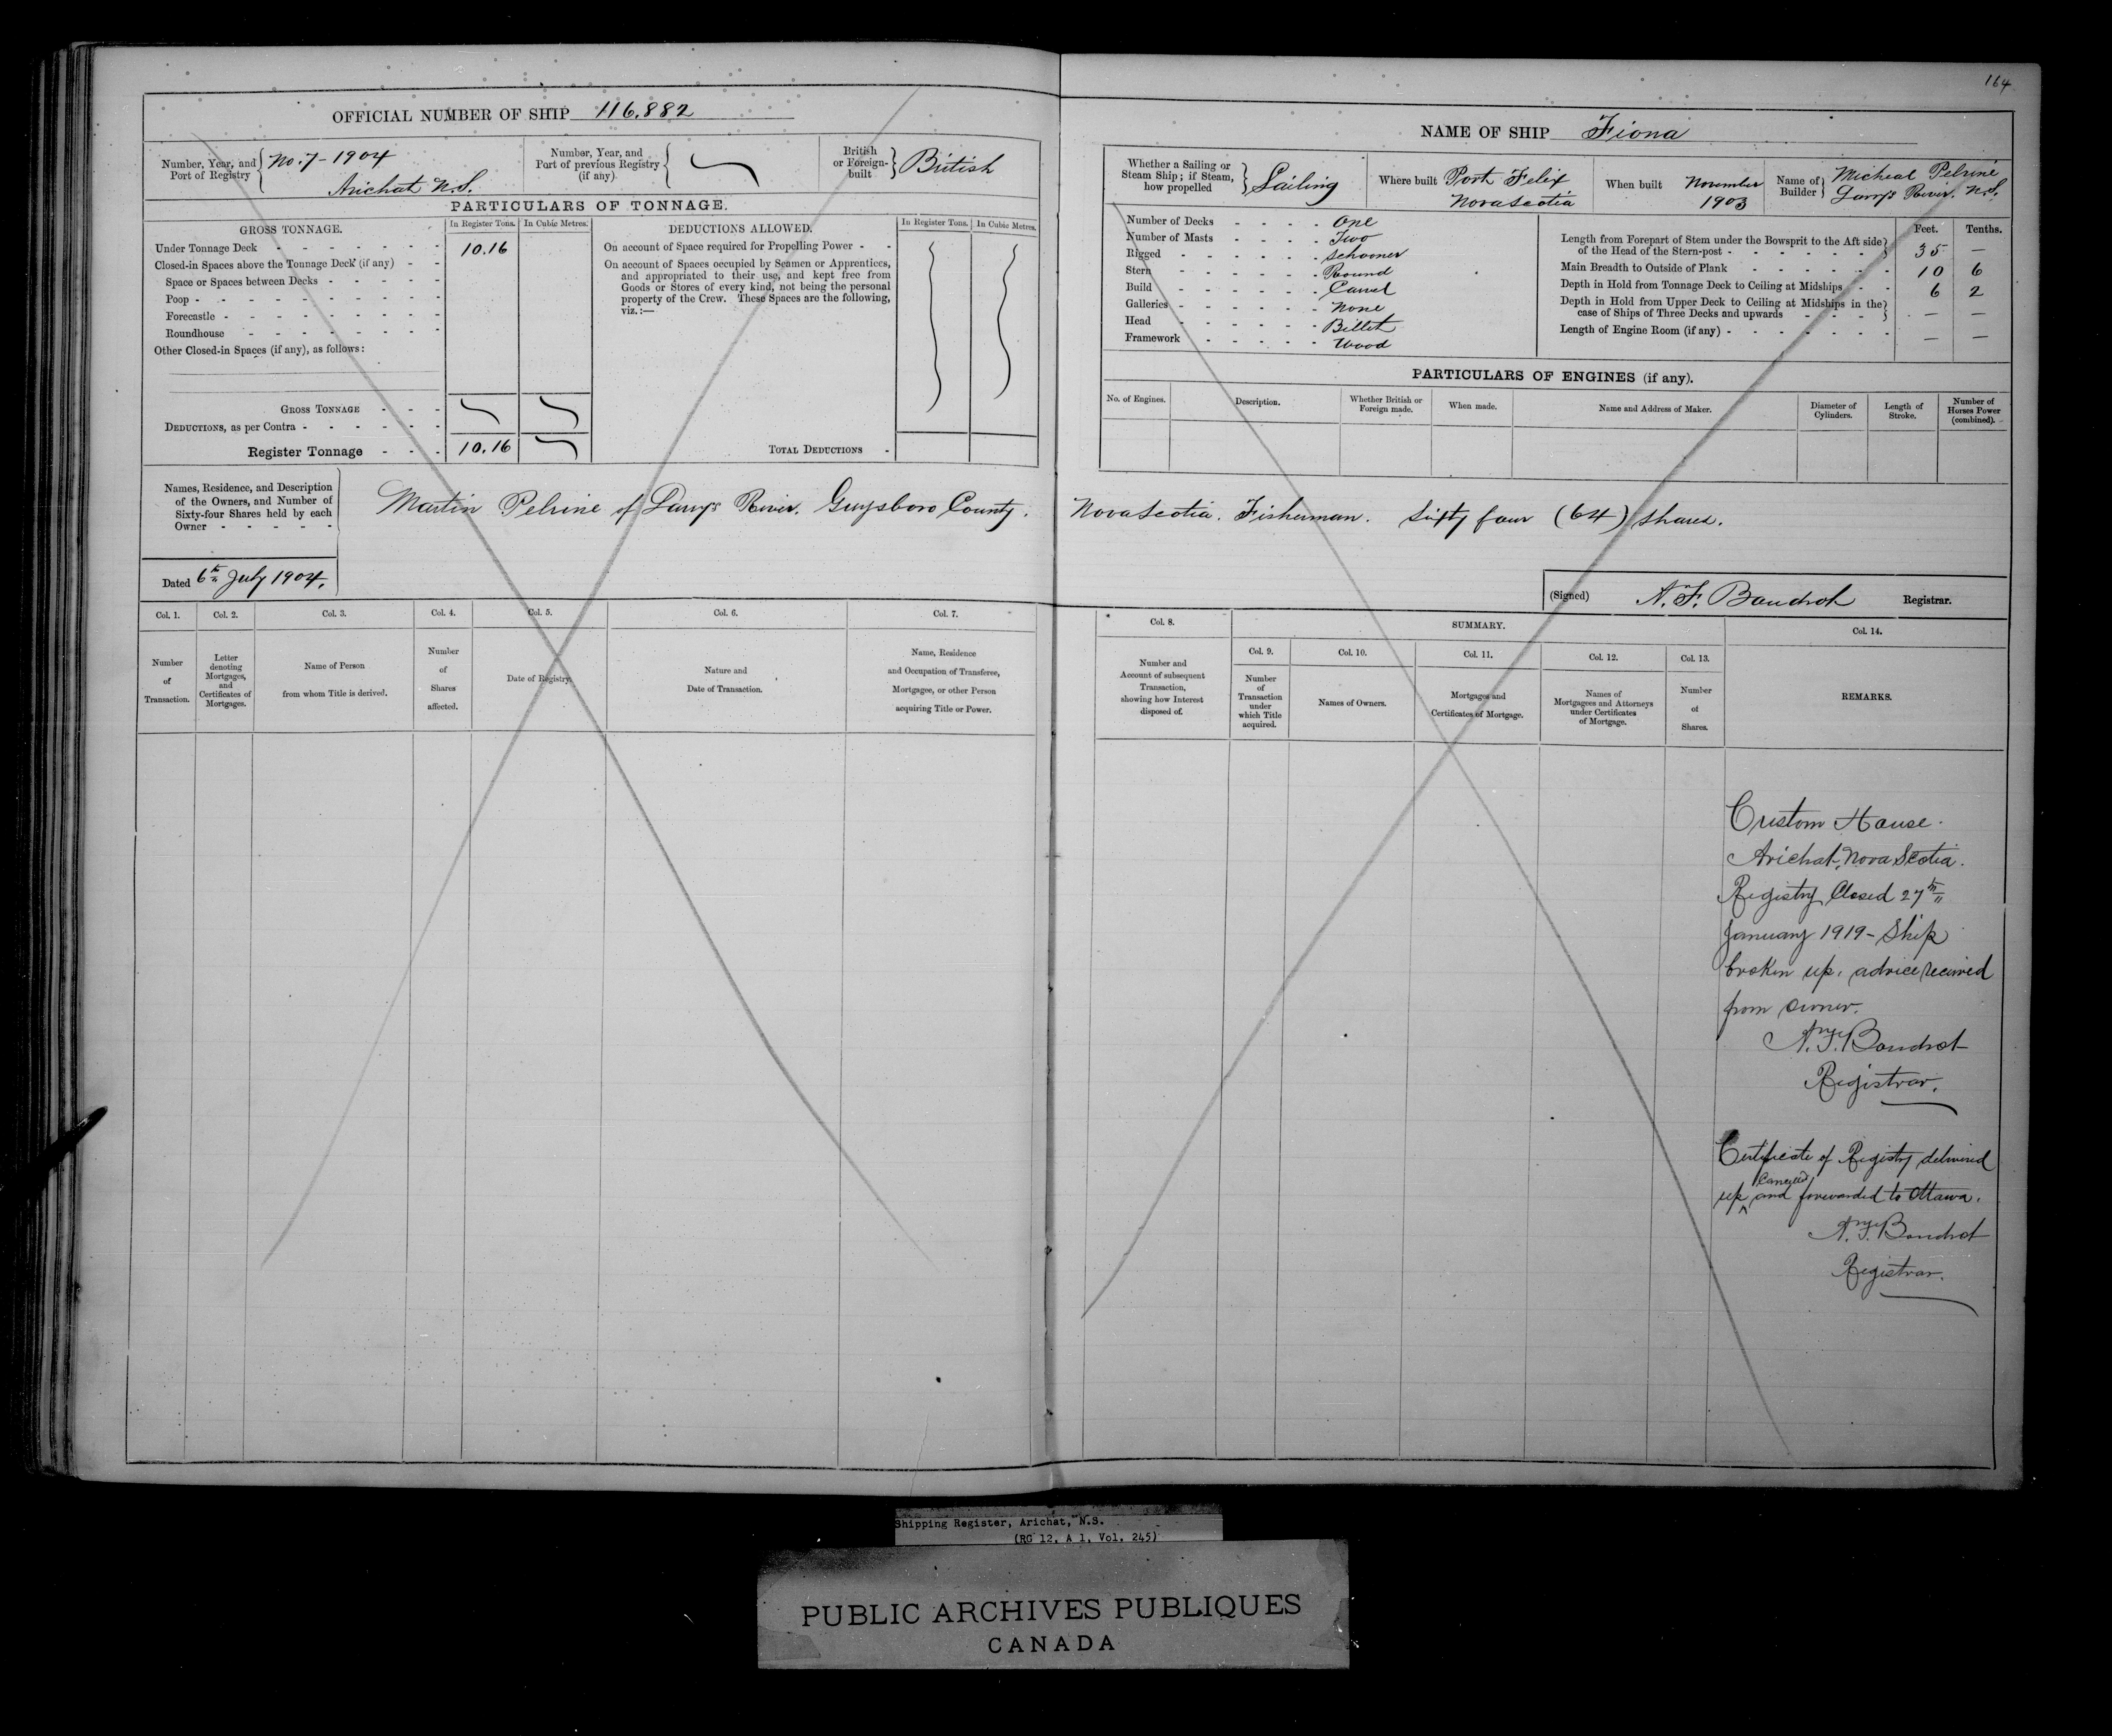 164
OFFICIAL NUMBER OF SHIP 116.882
Number, Year, and Port of Registry No. 7 - 1904 Arichat N.S.
Number, Year, and Port of previous Registry (if any)
British or Foreign-built British
PARTICULARS OF TONNAGE.
GROSS TONNAGE. In Register Tons. In Cubic Metres.
Under Tonnage Deck - - - - - - - 10.16
Closed-in Spaces above the Tonnage Deck (if any) - -
Space or Spaces between Decks - - - - -
Poop - - - - - - - - -
Forecastle - - - - - - - -
Roundhouse - - - - - - -
Other Closed-in Spaces (if any), as follows:
GROSS TONNAGE - - -
DEDUCTIONS, as per Contra - - - - - -
Register Tonnage - - - 10.16
DEDUCTIONS ALLOWED. In Register Tons. In Cubic Metres.
On account of Space required for Propelling Power - -
On account of Spaces occupied by Seamen or Apprentices,
and appropriated to their use, and kept free from
Goods or Stores of every kind, not being the personal
property of the Crew. These Spaces are the following,
viz.:—
TOTAL DEDUCTIONS -
NAME OF SHIP Fiona
Whether a Sailing or Steam Ship; if Steam, how propelled Sailing
Where built Port Felix Nova Scotia
When built November 1903
Name of Builder Micheal Pelrine Larrys River. N.S.
Number of Decks - - - - One
Number of Masts - - - - Two
Rigged - - - - - - Schooner
Stern - - - - - - Round
Build - - - - - - Carvel
Galleries - - - - - - None
Head - - - - - - Billet
Framework - - - - - Wood
Feet. Tenths.
Length from Forepart of Stem under the Bowsprit to the Aft side
of the Head of the Stern-post - - - - - - - 35 —
Main Breadth to Outside of Plank - - - - - - - 10 6
Depth in Hold from Tonnage Deck to Ceiling at Midships - - 6 2
Depth in Hold from Upper Deck to Ceiling at Midships in the
case of Ships of Three Decks and upwards - - - - — —
Length of Engine Room (if any) - - - - - - - — —
PARTICULARS OF ENGINES (if any).
No. of Engines. Description. Whether British or Foreign made. When made. Name and Address of Maker. Diameter of Cylinders. Length of Stroke. Number of Horses Power (combined).
Names, Residence, and Description
of the Owners, and Number of
Sixty-four Shares held by each
Owner - - - - -
Martin Pelrine of Larrys River. Guysboro County. Nova Scotia. Fisherman. Sixty four (64) shares.
Dated 6th July 1904.
(Signed) A. F. Boudrot Registrar.
Col. 1. Col. 2. Col. 3. Col. 4. Col. 5. Col. 6. Col. 7.
Number of Transaction.
Letter denoting Mortgages, and Certificates of Mortgages.
Name of Person from whom Title is derived.
Number of Shares affected.
Date of Registry.
Nature and Date of Transaction.
Name, Residence and Occupation of Transferee, Mortgagee, or other Person acquiring Title or Power.
Col. 8. SUMMARY. Col. 14.
Col. 9. Col. 10. Col. 11. Col. 12. Col. 13.
Number and Account of subsequent Transaction, showing how Interest disposed of.
Number of Transaction under which Title acquired.
Names of Owners.
Mortgages and Certificates of Mortgage.
Names of Mortgagees and Attorneys under Certificates of Mortgage.
Number of Shares.
REMARKS.
Custom House.
Arichat, Nova Scotia.
Registry Closed 27th
January 1919 - Ship
broken up, advice received
from owner.
A. F. Boudrot
Registrar.
Certificate of Registry delivered
up cancelled and forwarded to Ottawa.
A. F. Boudrot
Registrar.
Shipping Register, Arichat, N.S.
(RG 12, A 1, Vol. 245)
PUBLIC ARCHIVES PUBLIQUES
CANADA